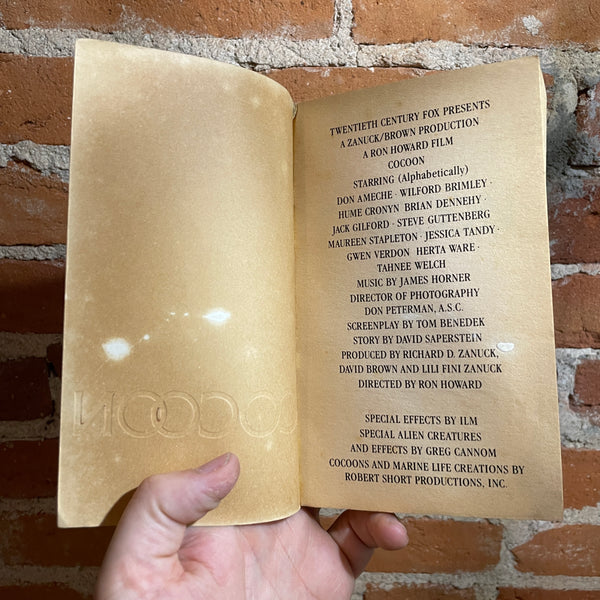 COCOON
TWENTIETH CENTURY FOX PRESENTS
A ZANUCK/BROWN PRODUCTION
A RON HOWARD FILM
COCOON
STARRING (Alphabetically)
DON AMECHE · WILFORD BRIMLEY ·
HUME CRONYN BRIAN DENNEHY ·
JACK GILFORD · STEVE GUTTENBERG
MAUREEN STAPLETON · JESSICA TANDY ·
GWEN VERDON HERTA WARE ·
TAHNEE WELCH
MUSIC BY JAMES HORNER
DIRECTOR OF PHOTOGRAPHY
DON PETERMAN, A.S.C.
SCREENPLAY BY TOM BENEDEK
STORY BY DAVID SAPERSTEIN
PRODUCED BY RICHARD D. ZANUCK,
DAVID BROWN AND LILI FINI ZANUCK
DIRECTED BY RON HOWARD
SPECIAL EFFECTS BY ILM
SPECIAL ALIEN CREATURES
AND EFFECTS BY GREG CANNOM
COCOONS AND MARINE LIFE CREATIONS BY
ROBERT SHORT PRODUCTIONS, INC.